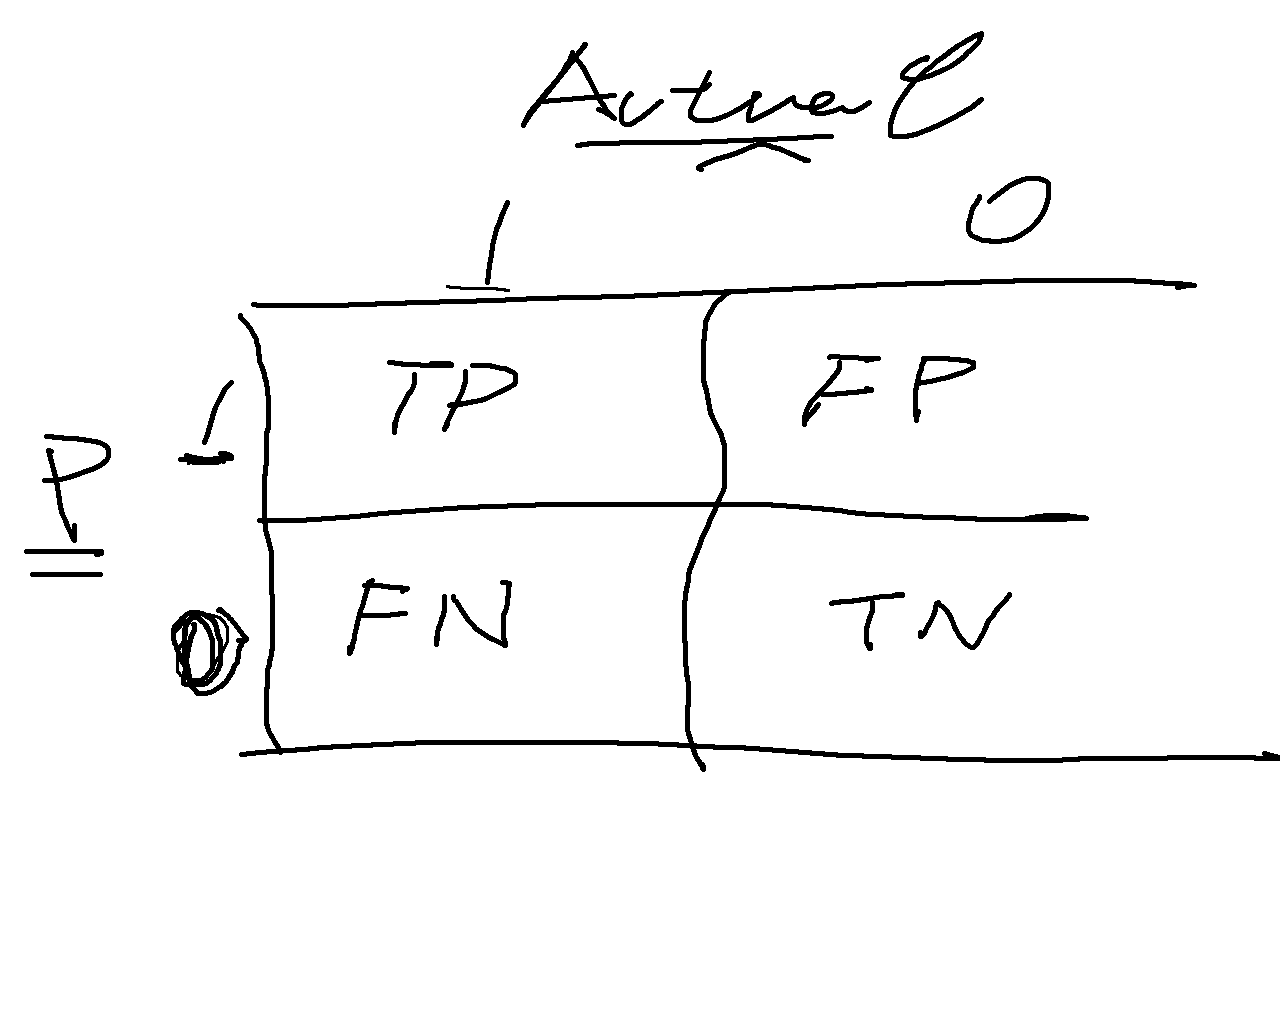 Actual
1 0
1 TP FP
P
0 FN TN